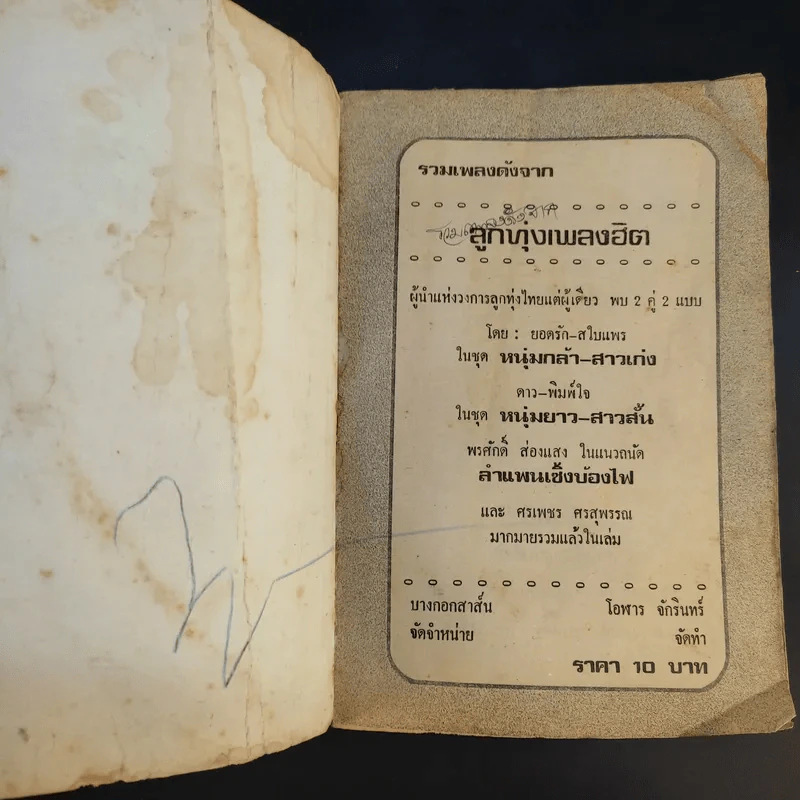 รวมเพลงดังจาก
รวมเพลงดังจาก
ลูกทุ่งเพลงฮิต
ผู้นำแห่งวงการลูกทุ่งไทยแต่ผู้เดียว พบ 2 คู่ 2 แบบ
โดย : ยอดรัก-สใบแพร
ในชุด หนุ่มกล้า-สาวเก่ง
ดาว-พิมพ์ใจ
ในชุด หนุ่มยาว-สาวสั้น
พรศักดิ์ ส่องแสง ในแนวถนัด
ลำแพนเซิ้งบ้องไฟ
และ ศรเพชร ศรสุพรรณ
มากมายรวมแล้วในเล่ม
บางกอกสาส์น โอฬาร จักรินทร์
จัดจำหน่าย จัดทำ
ราคา 10 บาท